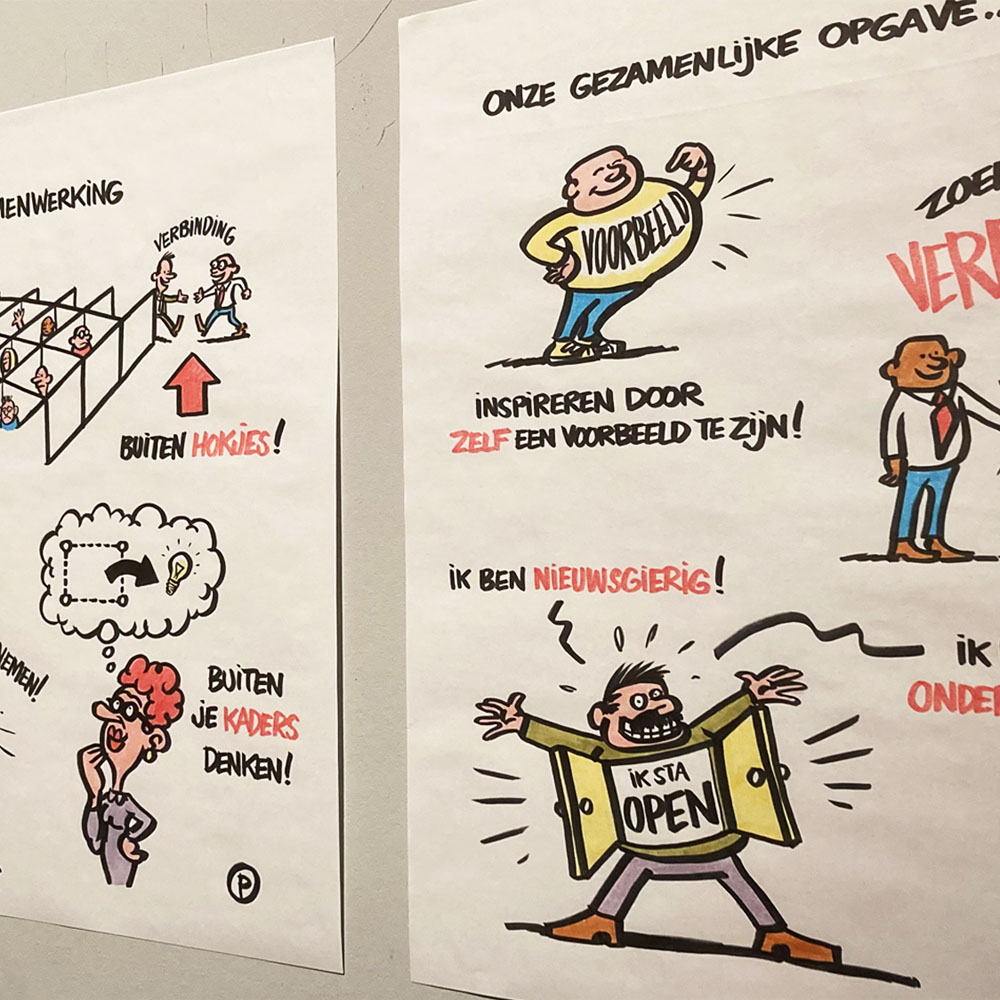 VERBINDING
BUITEN HOKJES!
BUITEN
JE KADERS
DENKEN!
P
ONZE GEZAMENLIJKE OPGAVE...
VOORBEELD
INSPIREREN DOOR
ZELF EEN VOORBEELD TE ZIJN!
IK BEN NIEUWSGIERIG!
IK
IK STA
OPEN